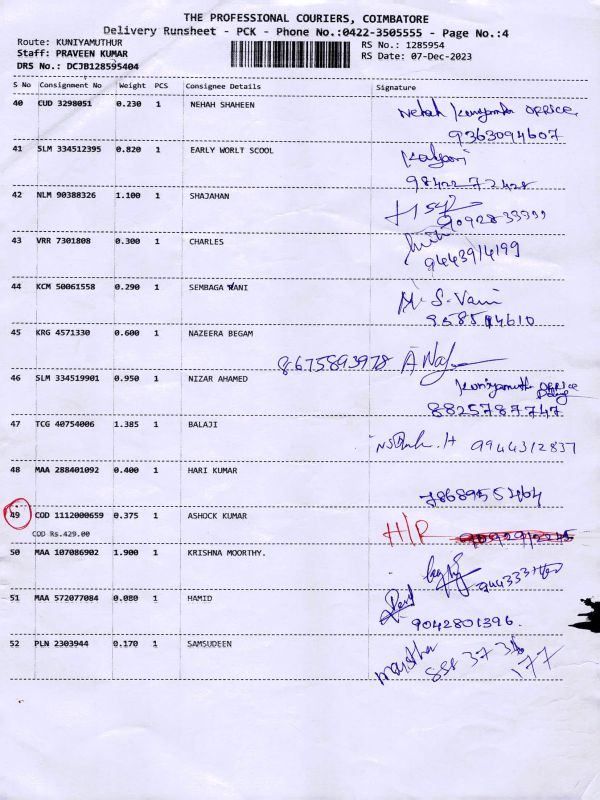 THE PROFESSIONAL COURIERS, COIMBATORE
Delivery Runsheet - PCK - Phone No.:0422-3505555 - Page No.:4
Route: KUNIYAMUTHUR RS No.: 1285954
Staff: PRAVEEN KUMAR RS Date: 07-Dec-2023
DRS No.: DCJB128595404
S No Consignment No Weight PCS Consignee Details Signature
40 CUD 3298051 0.230 1 NEHAH SHAHEEN Nehah OFFICE
9363094607
41 SLM 334512395 0.820 1 EARLY WORLT SCOOL
9842272428
42 NLM 90388326 1.100 1 SHAJAHAN
43 VRR 7301808 0.300 1 CHARLES
9443914199
44 KCM 50061558 0.290 1 SEMBAGA VANI S. Vani
45 KRG 4571330 0.600 1 NAZEERA BEGAM
8675893978
46 SLM 334519901 0.950 1 NIZAR AHAMED OFFICE
8825787747
47 TCG 40754006 1.385 1 BALAJI
9944312837
48 MAA 288401092 0.400 1 HARI KUMAR
49 COD 1112000659 0.375 1 ASHOCK KUMAR H/R
COD Rs.429.00
50 MAA 107086902 1.900 1 KRISHNA MOORTHY.
51 MAA 572077084 0.080 1 HAMID
9042801396.
52 PLN 2303944 0.170 1 SAMSUDEEN